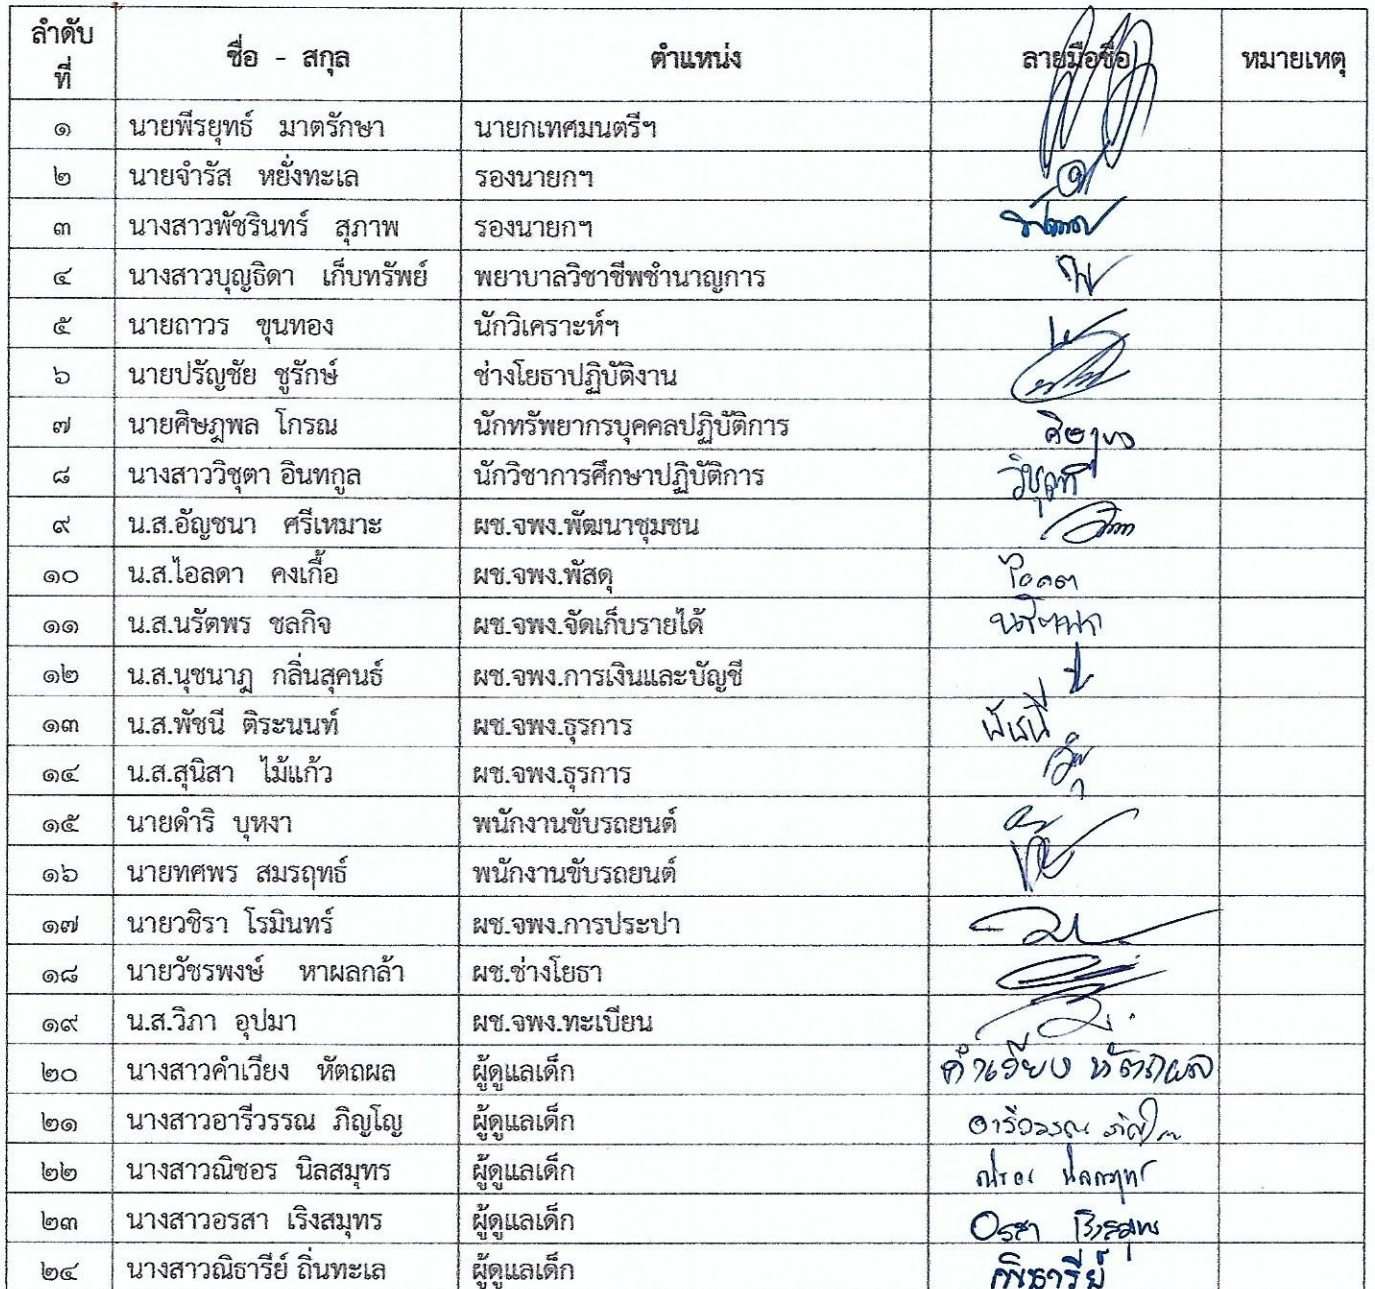 ลำดับที่ ชื่อ - สกุล ตำแหน่ง ลายมือชื่อ หมายเหตุ
๑ นายพีรยุทธ์ มาตรักษา นายกเทศมนตรีฯ
๒ นายจำรัส หยั่งทะเล รองนายกฯ
๓ นางสาวพัชรินทร์ สุภาพ รองนายกฯ
๔ นางสาวบุญธิดา เก็บทรัพย์ พยาบาลวิชาชีพชำนาญการ
๕ นายถาวร ขุนทอง นักวิเคราะห์ฯ
๖ นายปรัญชัย ชูรักษ์ ช่างโยธาปฏิบัติงาน
๗ นายศิษฎพล โกรณ นักทรัพยากรบุคคลปฏิบัติการ
๘ นางสาววิชุตา อินทกูล นักวิชาการศึกษาปฏิบัติการ วิชุตา
๙ น.ส.อัญชนา ศรีเหมาะ ผช.จพง.พัฒนาชุมชน
๑๐ น.ส.ไอลดา คงเกื้อ ผช.จพง.พัสดุ ไอลดา
๑๑ น.ส.นรัตพร ชลกิจ ผช.จพง.จัดเก็บรายได้
๑๒ น.ส.นุชนาฎ กลิ่นสุคนธ์ ผช.จพง.การเงินและบัญชี
๑๓ น.ส.พัชนี ติระนนท์ ผช.จพง.ธุรการ พัชนี
๑๔ น.ส.สุนิสา ไม้แก้ว ผช.จพง.ธุรการ
๑๕ นายดำริ บุหงา พนักงานขับรถยนต์
๑๖ นายทศพร สมรฤทธ์ พนักงานขับรถยนต์
๑๗ นายวชิรา โรมินทร์ ผช.จพง.การประปา
๑๘ นายวัชรพงษ์ หาผลกล้า ผช.ช่างโยธา
๑๙ น.ส.วิภา อุปมา ผช.จพง.ทะเบียน
๒๐ นางสาวคำเวียง หัตถผล ผู้ดูแลเด็ก คำเวียง หัตถผล
๒๑ นางสาวอารีวรรณ ภิญโญ ผู้ดูแลเด็ก อารีวรรณ ภิญโญ
๒๒ นางสาวณิชอร นิลสมุทร ผู้ดูแลเด็ก ณิชอร นิลสมุทร
๒๓ นางสาวอรสา เริงสมุทร ผู้ดูแลเด็ก อรสา เริงสมุทร
๒๔ นางสาวณิธารีย์ ถิ่นทะเล ผู้ดูแลเด็ก ณิธารีย์